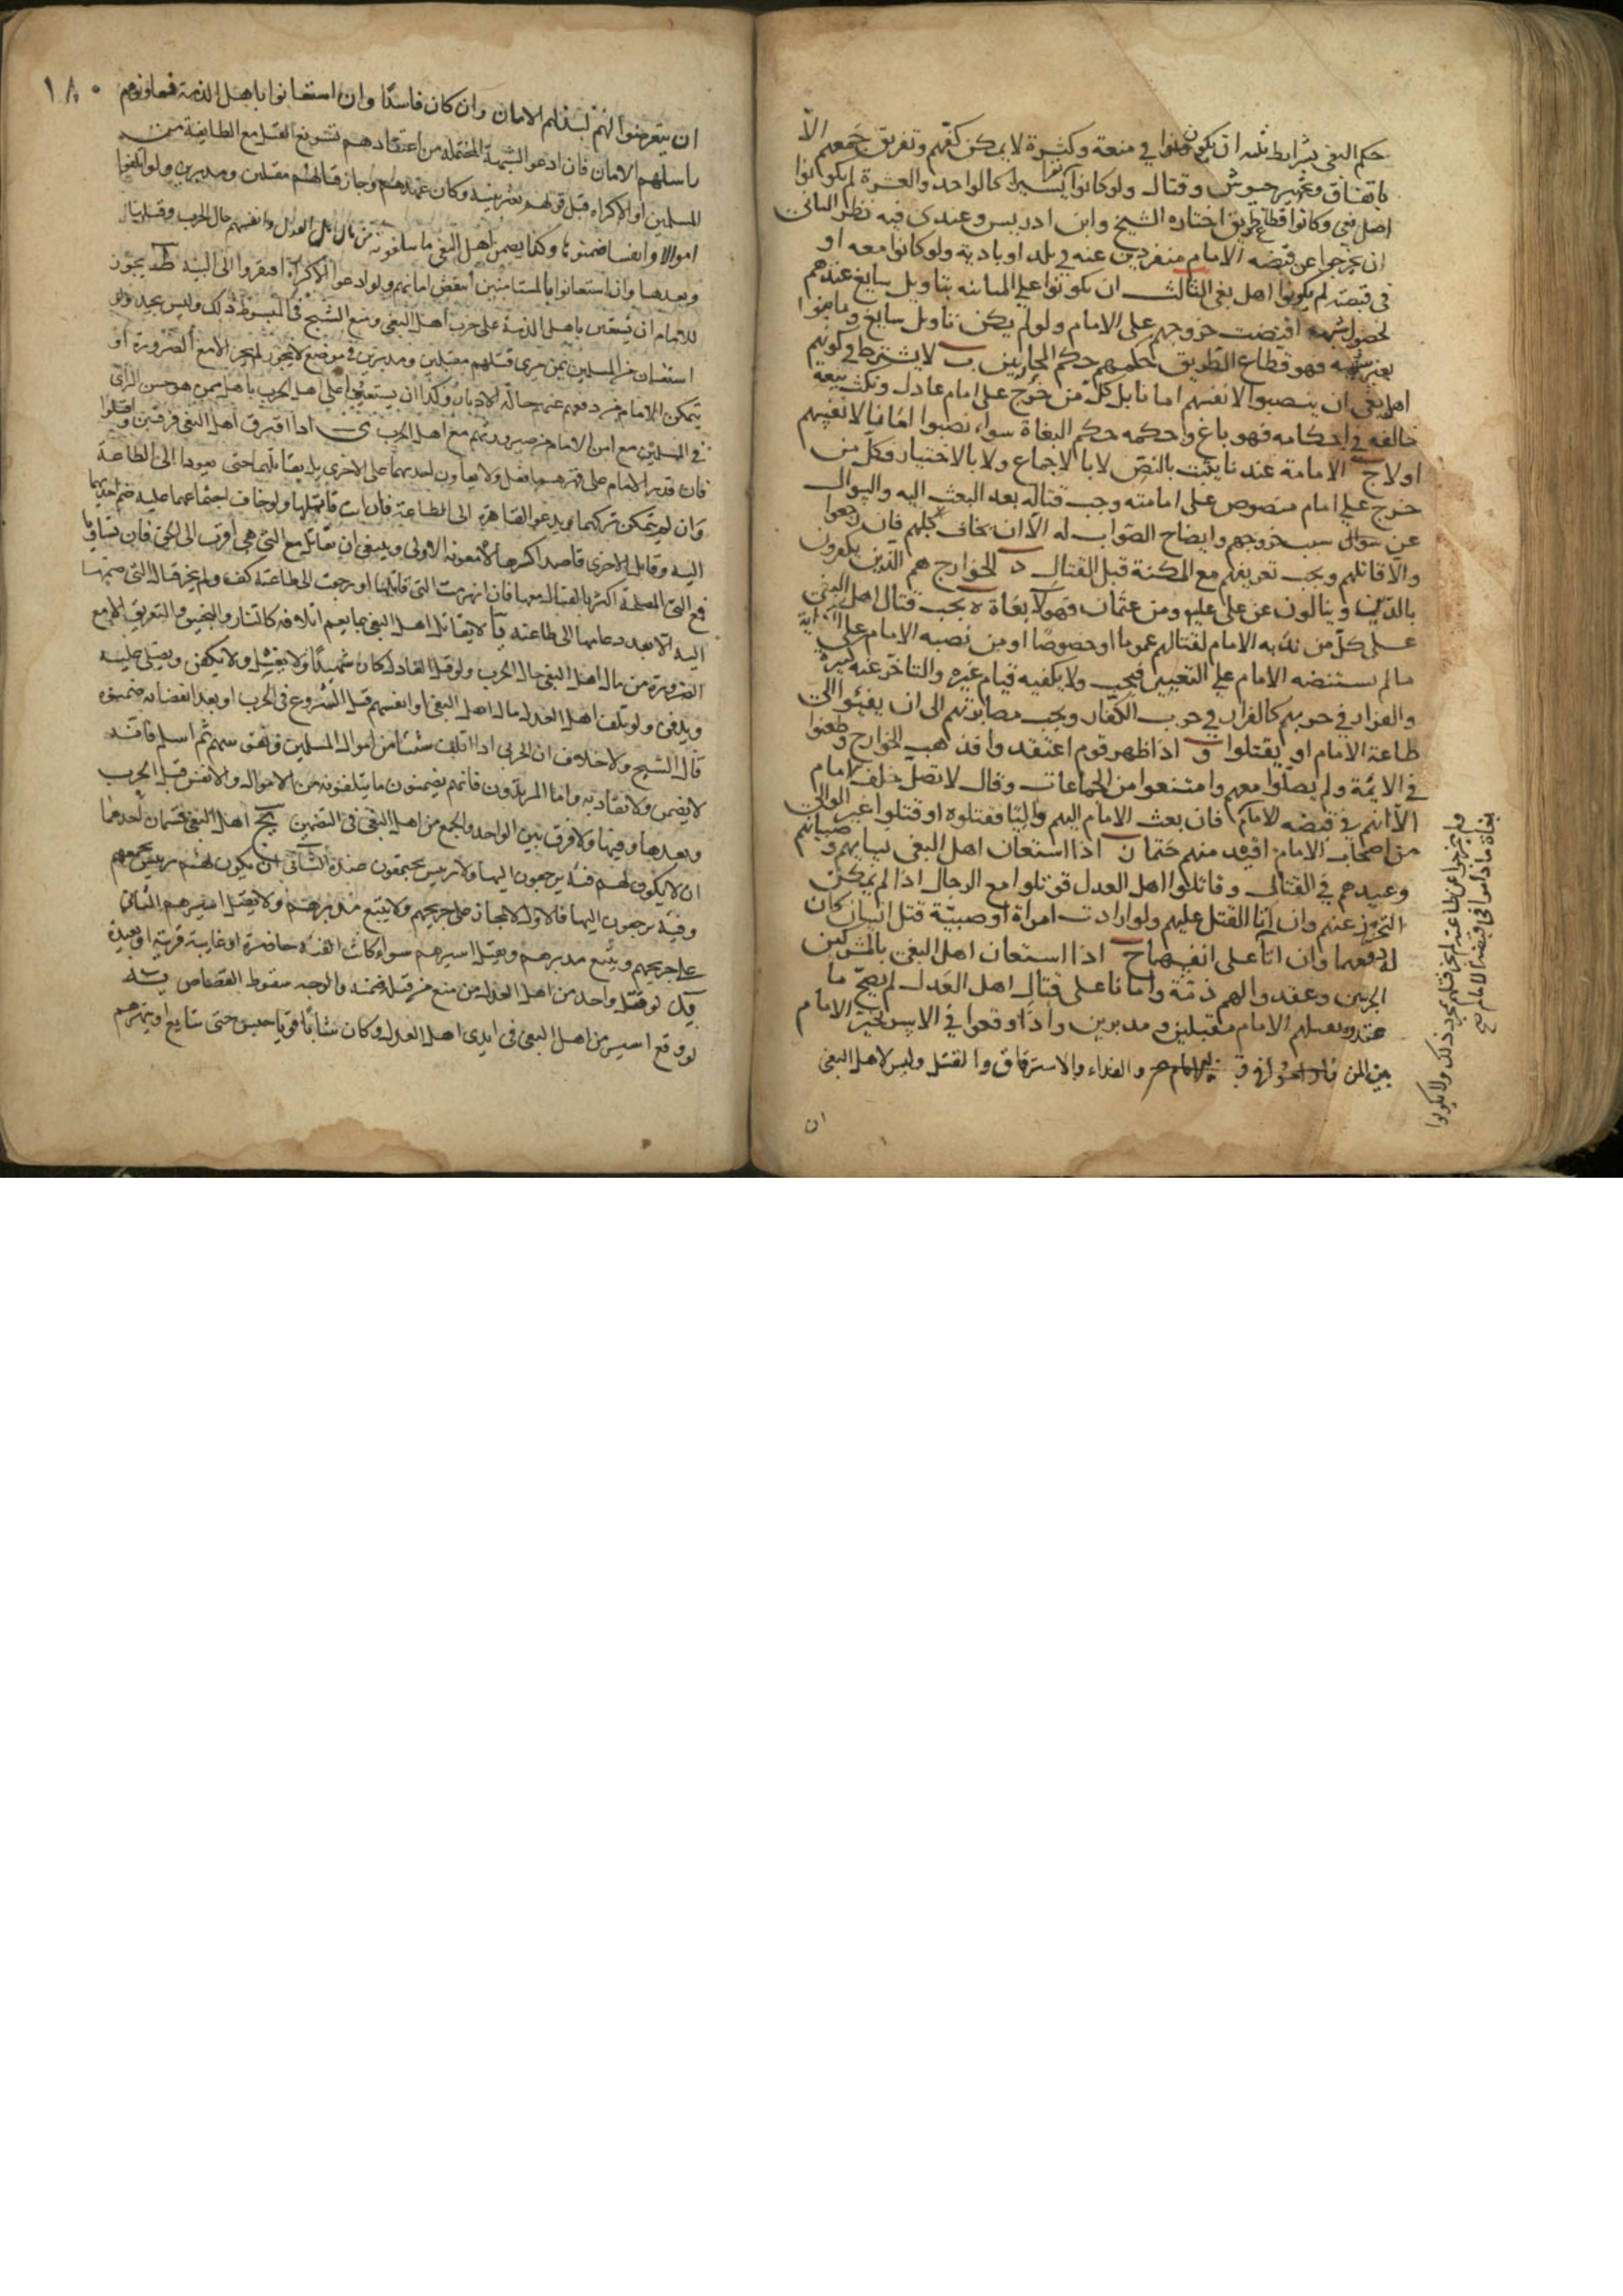 حكم البغى بشرايط ثلثه ان يكونوا في منعة وكثرة لا يمكن كفهم وتفريق جمعهم الا
باتفاق وتجهيز جيوش وقتال ولو كانوا نفرا يسيرا كالواحد والعشرة لم يكونوا
اهل بغى وكانوا قطاع طريق اختاره الشيخ وابن ادريس وعندى فيه نظر الثانى
ان يخرجوا عن قبضه الامام منفردين عنه في بلد او بادية ولو كانوا معه او
في قبضته لم يكونوا اهل بغى الثالث ان يكونوا على المباينه بتاويل سايغ عندهم
لحصول شبهه اقتضت خروجهم على الامام ولو لم يكن تاويل سايغ وباينوا
بغير شبهه فهو قطاع الطريق حكمهم حكم المحاربين ب لا يشترط في كونهم
اهل بغى ان ينصبوا لانفسهم اماما بل كل من خرج على امام عادل ونكث بيعته
خالفه في احكامه فهو باغ وحكمه حكم البغاة سواء نصبوا اماما لانفسهم
اولا ج الامامة عندنا يثبت بالنص لا بالاجماع ولا بالاختيار فكل من
خرج على امام منصوص على امامته وجب قتاله بعد البعث اليه والسوال
عن سوال سبب خروجهم وايضاح الصواب له الا ان يخاف كلبهم فان رجعوا
والا قاتلهم ويجب تعريفهم مع المكنة قبل القتال د الخوارج هم الذين يكفرون
بالدين وينالون عن على عليه ومن عثمان فهولا بغاة ه يجب قتال اهل البغى
على كل من ندبه الامام لقتالهم عموما او خصوصا او من نصبه الامام على الكفاية
ما لم يستنهضه الامام على التعيين فيجب ولا يكفيه قيام غيره والتاخر عنه كبيرة
والفرار في حربهم كالفرار في حرب الكفار ويجب مصابرتهم الى ان يفيئوا الى
طاعة الامام او يقتلوا و اذا ظهر قوم اعتقدوا مذهب الخوارج وطعنوا
في الائمة ولم يصلوا معهم وامتنعوا من الجماعات وقال لا تصل خلف امام
الا انهم في قبضه الامام فان بعث الامام اليهم واليا فقتلوه او قتلوا غير الوالى
من اصحاب الامام اقيد منهم حتما ز اذا استعان اهل البغى بنسايهم وصبيانهم
وعبيدهم في القتال وقاتلوا اهل العدل قوتلوا مع الرجال اذا لم يمكن
التحرز عنهم وان اتا القتل عليهم ولو ارادت امراة او صبية قتل انسان كان
له دفعهما وان اتا على انفسهما ح اذا استعان اهل البغى بالمشركين
الحربيين وعقدوا لهم ذمة وامانا على قتال اهل العدل لم يصح ما
عقدوه يقتلهم الامام مقبلين ومدبرين واذا وقعوا في الاسر تخير الامام
بين المن والفداء والاسترقاق والقتل وليس لاهل البغى
ان
ولم يخرجوا عن طاعته لم يجز قتلهم بمجرد ذلك ولا يكونوا
بغاة ما داموا في قبضة الامام صح
١٨٠
ان يتعرضوا لهم لبذلهم الامان وان كان فاسدا وان استعانوا باهل الذمة فعاونوهم
راسلهم الامان فان ادعوا الشبهة المحتمله من اعتقادهم تسويغ القتل مع الطايفة من
المسلمين او الاكراه قبل قولهم بغير بينة وكان عهدهم وجاز قتالهم مقبلين ومدبرين ولو اتلفوا
اموالا وانفسا ضمنوها وكذا يضمن اهل البغى ما يتلفونه من مال اهل العدل وانفسهم حال الحرب وقبل ذلك
وبعدها وان استعانوا بالمستامنين انتقض امانهم ولو ادعوا الاكراه افتقروا الى البينه ط يجوز
للامام ان يستعين باهل الذمة على حرب اهل البغى ومنع الشيخ في المبسوط ذلك وليس بجيد ولو
استعان من المسلمين بمن يرى قتلهم مقبلين ومدبرين في موضع لا يجوز لم يجز الا مع الضرورة او
يتمكن الامام من دفعهم عنهم حاله الادبار وكذا ان يستعين على اهل الحرب باهل بمن هو حسن الراى
في المسلمين مع امن الامام من صيرورتهم مع اهل الحرب ى اذا افترق اهل البغى فرقتين واقتتلوا
فان قدر الامام على قهرهما فعل ولا يعاون احدهما على الاخرى بل يقاتلهما حتى يعودا الى الطاعة
وان لم يتمكن تركهما ويدعو القاهرة الى الطاعة فان ابت قاتلها ولو خاف اجتماعهما عليه ضم احديهما
اليه وقاتل الاخرى قاصدا كسرها لا معونه الاولى وينبغى ان يقاتل مع التى هى اقرب الى الحق فان تساويا
فمع التى المصلحة اكثر بالقتال معها فان انهزمت التى قاتلها او رجعت الى طاعته كف ولم يجز قتال التى ضمها
اليه الا بعد دعائها الى طاعته يا لا يقاتل اهل البغى بما يعم اتلافه كالنار والمنجنيق والتغريق الا مع
الضرورة من مال اهل البغى حال الحرب ولو قتل العادل كان شهيدا ولا يغسل ولا يكفن ويصلى عليه
ويدفن ولو تلف اهل العدل مال اهل البغى او انفسهم قبل الشروع في الحرب او بعد انقضائه ضمنوه
قال الشيخ ولا خلاف ان الحربى اذا اتلف شيئا من اموال المسلمين ونفوسهم ثم اسلم فانه
لا يضمن ولا يقاد به واما المرتدون فانهم يضمنون ما يتلفونه من الاموال والانفس قبل الحرب
وبعدها وفيها ولا فرق بين الواحد والجمع من اهل البغى في التضمين يج اهل البغى قسمان احدهما
ان لا يكون لهم فئة يرجعون اليها ولا رييس يجتمعون عنده الثانى ان يكون لهم رييس يجمعهم
وفئة يرجعون اليها فالاول لا يجاز على جريحهم ولا يتبع مدبرهم ولا يقتل اسيرهم الثانى
على جريحهم ويتبع مدبرهم ويقتل اسيرهم سواء كانت الفئة حاضرة او غايبة قريبة او بعيدة
لو قتل واحد من اهل العدل من منع من قتله ضمنه والوجه سقوط القصاص
لو وقع اسير من اهل البغى في ايدى اهل العدل وكان شابا قويا حبس حتى